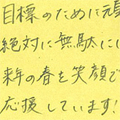 目標のために元
絶対に無駄にし
来年の春を笑顔で
応援しています!